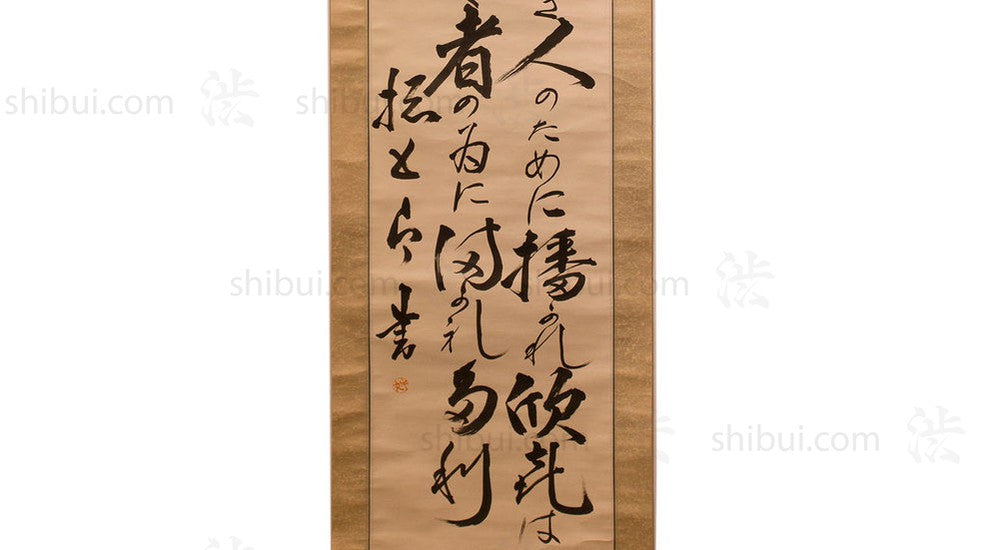 き人のために播かれ欣喜は
者の為に かれ多利
書
shibui.com 渋
shibui.com
shibui.com 渋
shibui.com
shibui.com 渋
shibui.com
shibui.com 渋